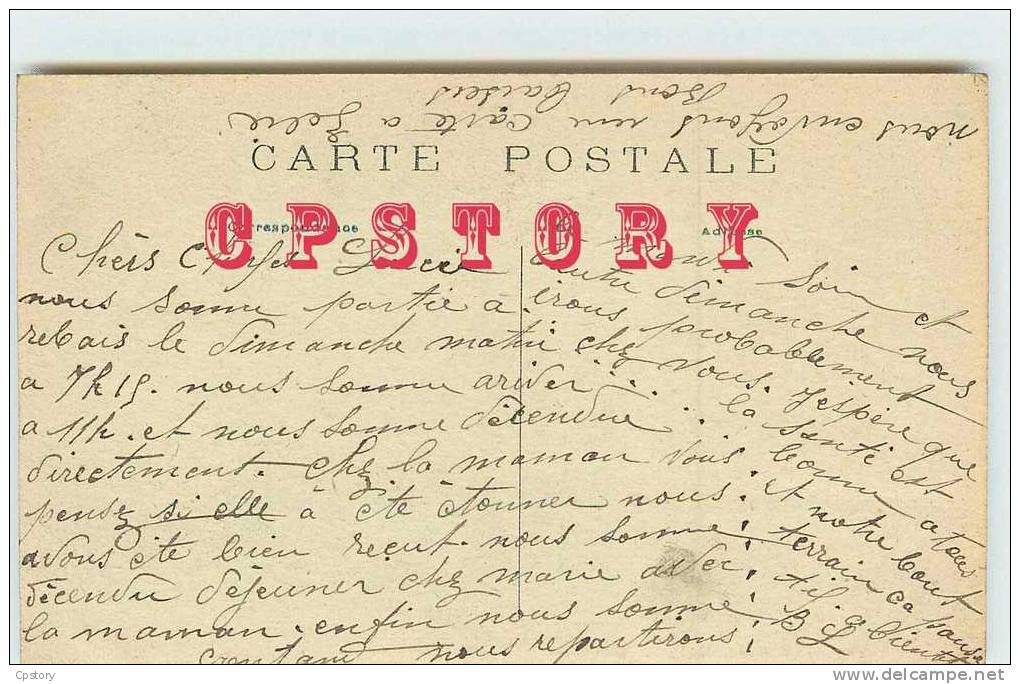 nous envoyons une carte a Zélie
Bons baisers
CARTE POSTALE
CPSTORY
Correspondance Adresse
Chèrs
nous somme partie à
rebais le dimanche matin
a 7h15. nous somme ariver
a 11h. et nous somme décendue
directement. chez la maman vous
pensez si elle à été étonner nous
avons été bien reçut. nous somme
décendu déjeuner chez marie avec
la maman. enfin nous somme
contant nous repartirons
soir et
dimanche nous
irons probablement
chez vous. J'espère que
la santé est
bonne a tous
et notre bout
terrain ça pousse
t-il a bientot
B L
Cpstory
www.delcampe.net